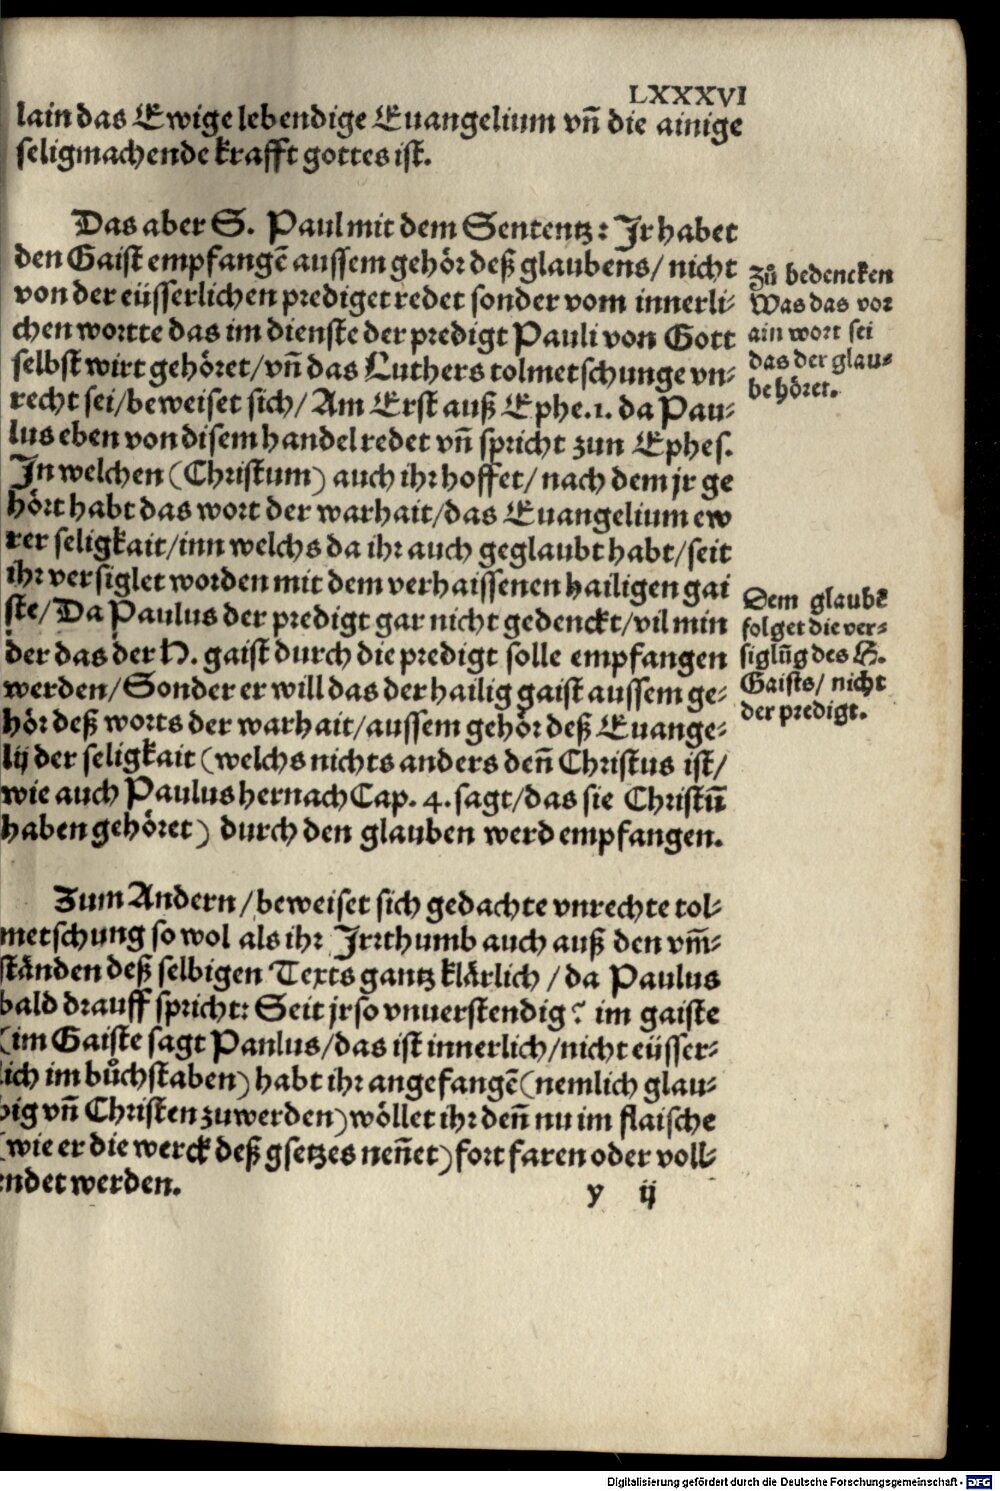 LXXXVI
lain das Ewige lebendige Euangelium vñ die ainige
seligmachende krafft gottes ist.
Das aber S. Paul mit dem Sententz: Jr habet
den Gaist empfangē aussem gehör deß glaubens/ nicht
von der eüsserlichen prediget redet sonder vom innerli-
chen wortte das im dienste der predigt Pauli von Gott
selbst wirt gehöret/ vñ das Luthers tolmetschunge vn-
recht sei/ beweiset sich/ Am Erst auß Ephe.1. da Pau-
lus eben von disem handel redet vñ spricht zun Ephes.
Jn welchen (Christum) auch ihr hoffet/ nach dem jr ge
hört habt das wort der warhait/ das Euangelium ew
rer seligkait/ inn welchs da ihr auch geglaubt habt/ seit
ihr versiglet worden mit dem verhaissenen hailigen gai
ste/ Da Paulus der predigt gar nicht gedenckt/ vil min
der das der H. gaist durch die predigt solle empfangen
werden/ Sonder er will das der hailig gaist aussem ge-
hör deß worts der warhait/ aussem gehör deß Euange-
lij der seligkait (welchs nichts anders deñ Christus ist/
wie auch Paulus hernach Cap. 4. sagt/ das sie Christū
haben gehöret) durch den glauben werd empfangen.
Zum Andern/ beweiset sich gedachte vnrechte tol-
metschung so wol als ihr Jrrthumb auch auß den vm̄-
ständen deß selbigen Texts gantz klärlich/ da Paulus
bald drauff spricht: Seit jr so vnuerstendig? im gaiste
(im Gaiste sagt Paulus/ das ist innerlich/ nicht eüsser-
lich im bůchstaben) habt ihr angefangē (nemlich glau-
big vñ Christen zuwerden) wöllet ihr deñ nu im flaische
(wie er die werck deß gsetzes neñet) fort faren oder voll-
endet werden.
y ij
Zů bedencken
Was das vor
ain wort sei
das der glau-
be höret.
Dem glaubē
folget die ver-
siglūg des H.
Gaists/ nicht
der predigt.
Digitalisierung gefördert durch die Deutsche Forschungsgemeinschaft - DFG